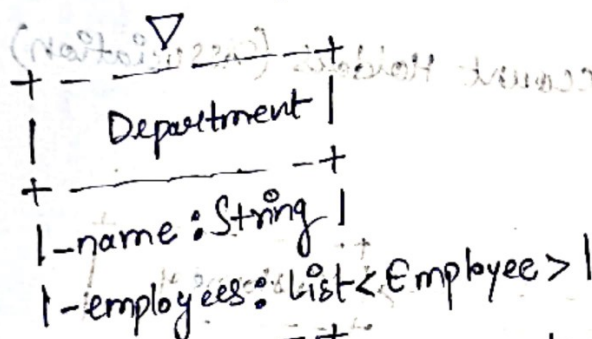 ▽
+ - ---- - +
| Department |
+ ---- - +
|-name: String |
|-employees: List<Employee> |